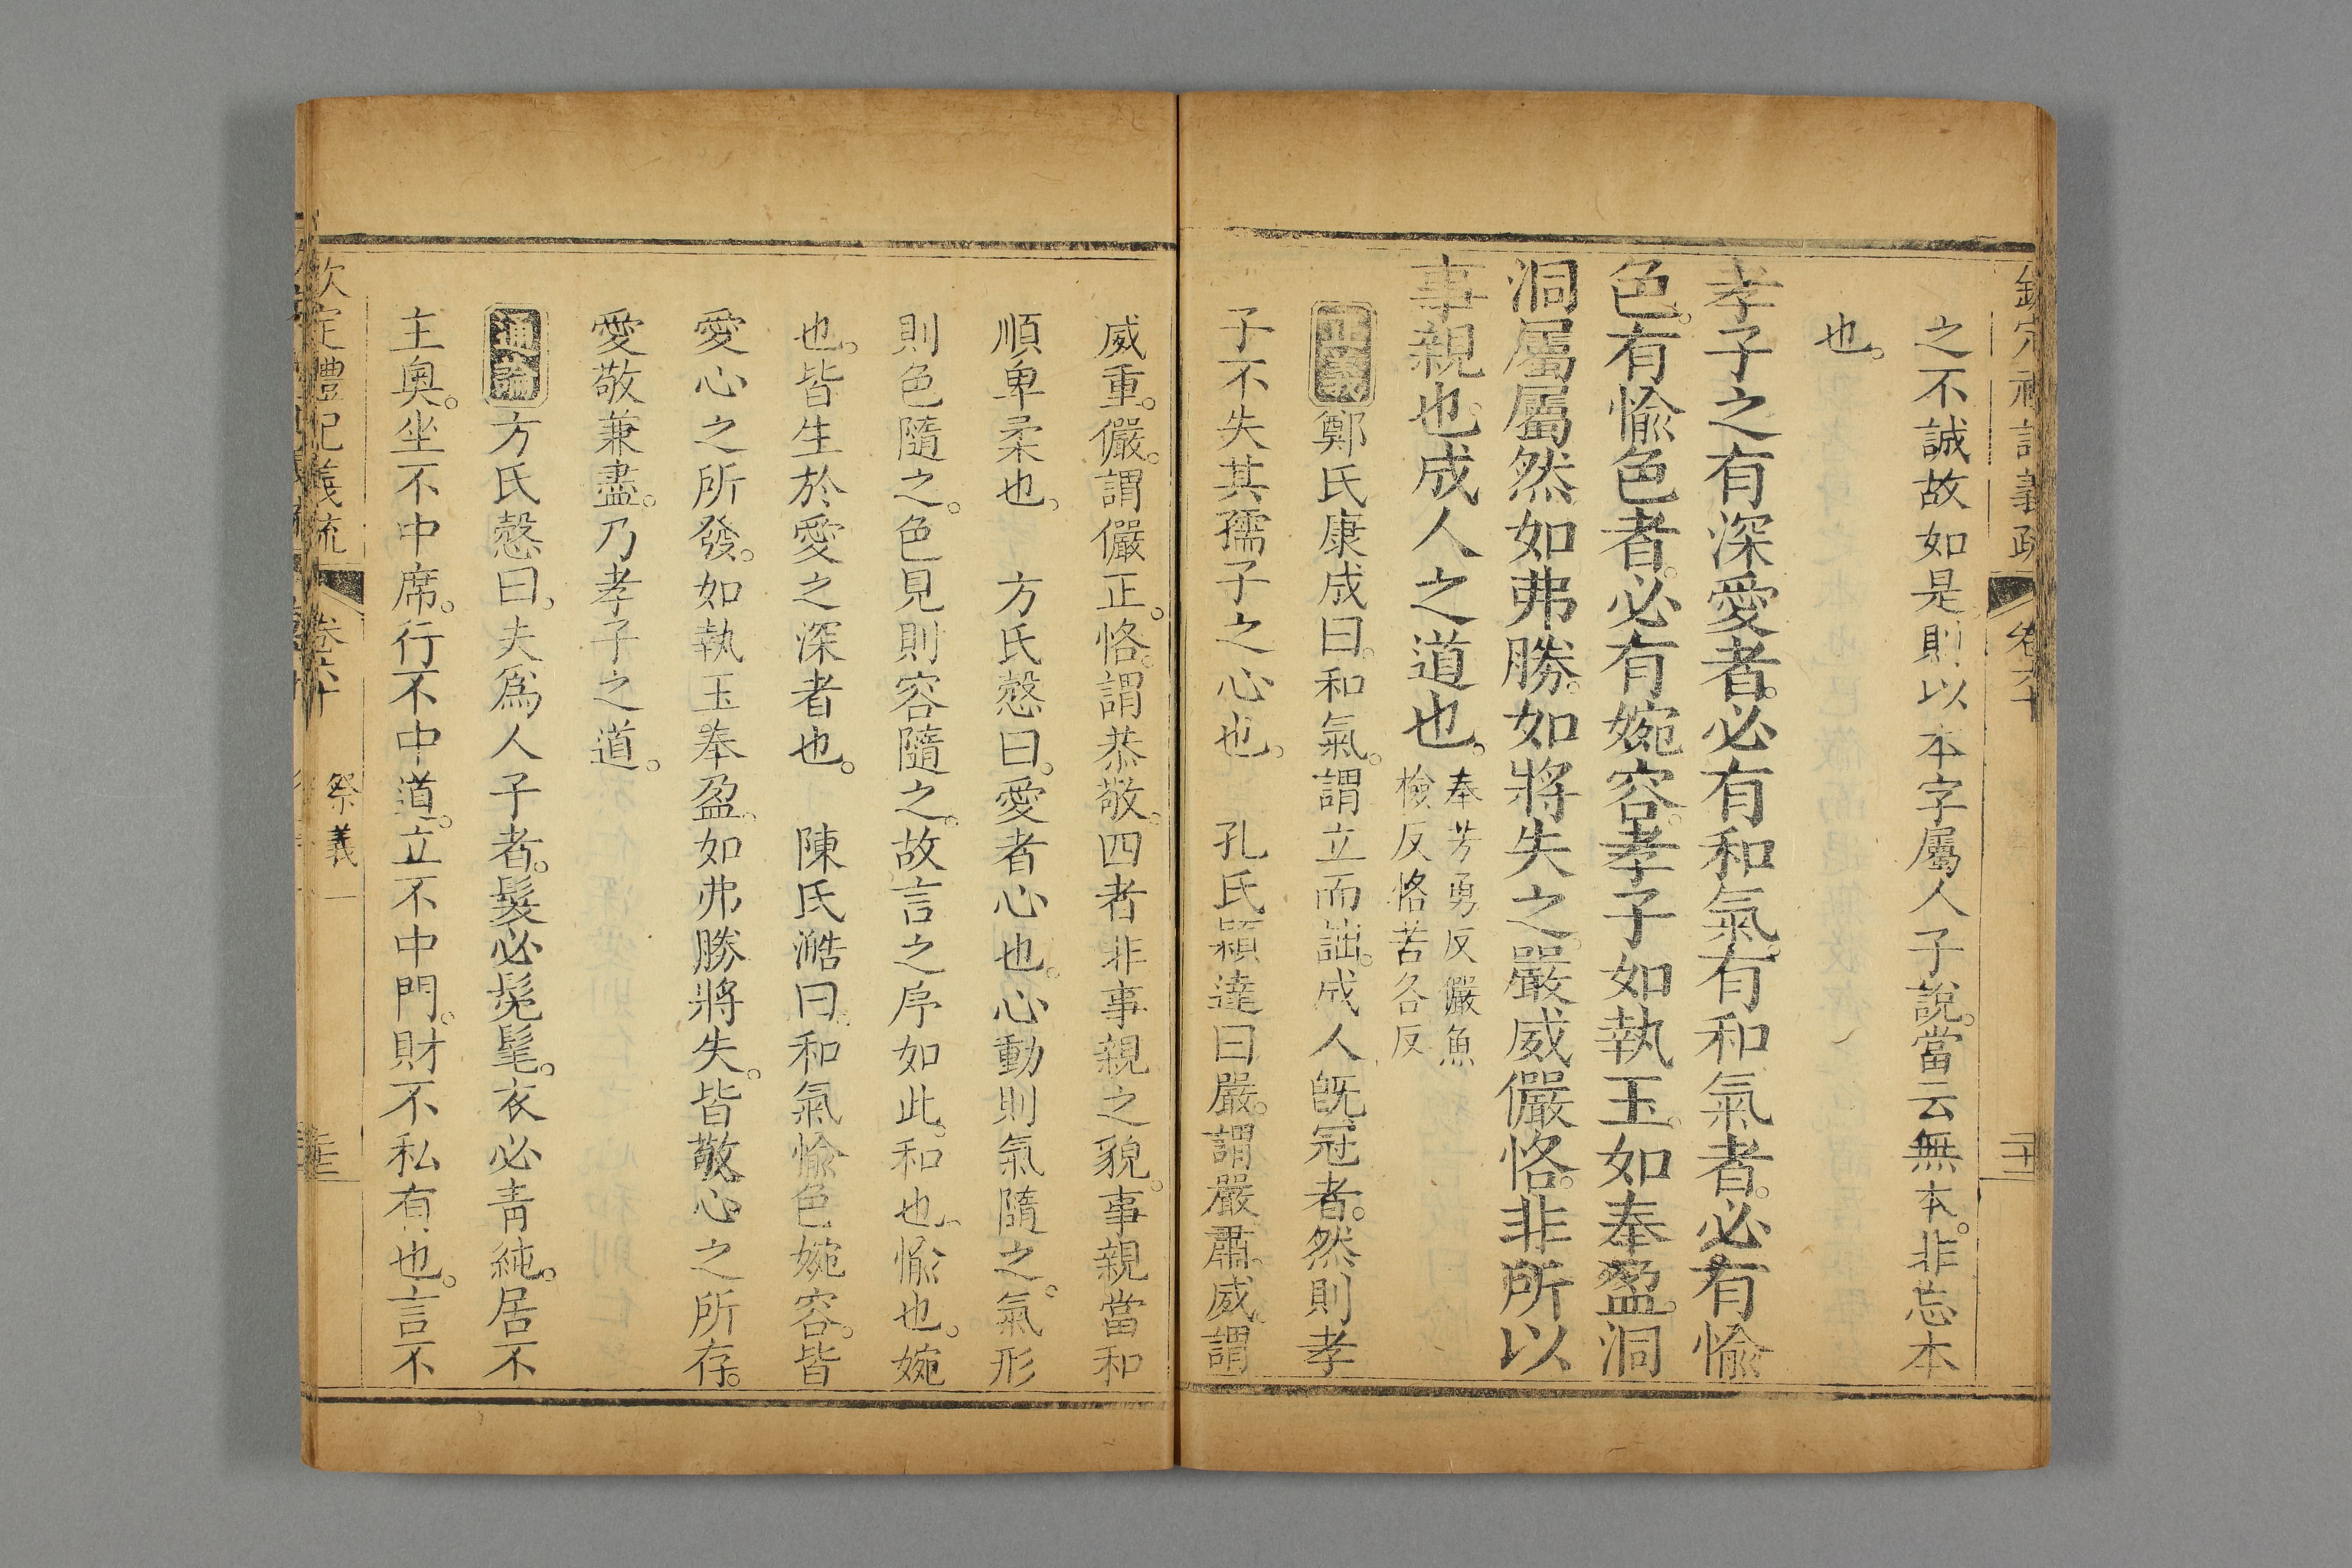 欽定禮記義疏 卷六十
之不誠故如是則以本字屬人子說。當云無本。非忘本
也。
孝子之有深愛者。必有和氣。有和氣者。必有愉
色。有愉色者。必有婉容。孝子如執玉。如奉盈。洞
洞屬屬然如弗勝。如將失之。嚴威儼恪。非所以
事親也。成人之道也。
奉芳勇反儼魚
檢反恪苦各反
正義 鄭氏康成曰。和氣。謂立而詘。成人旣冠者。然則孝
子不失其孺子之心也。 孔氏穎達曰嚴。謂嚴肅。威。謂
威重。儼。謂儼正。恪。謂恭敬。四者非事親之貌。事親當和
順卑柔也。 方氏慤曰。愛者心也。心動則氣隨之。氣形
則色隨之。色見則容隨之。故言之序如此。和也。愉也。婉
也。皆生於愛之深者也。 陳氏澔曰。和氣愉色婉容。皆
愛心之所發。如執玉奉盈。如弗勝將失。皆敬心之所存。
愛敬兼盡。乃孝子之道。
通論 方氏慤曰。夫爲人子者。髮必髧髦。衣必靑純。居不
主奧。坐不中席。行不中道。立不中門。財不私有也。言不
欽定禮記義疏 卷六十 祭義一